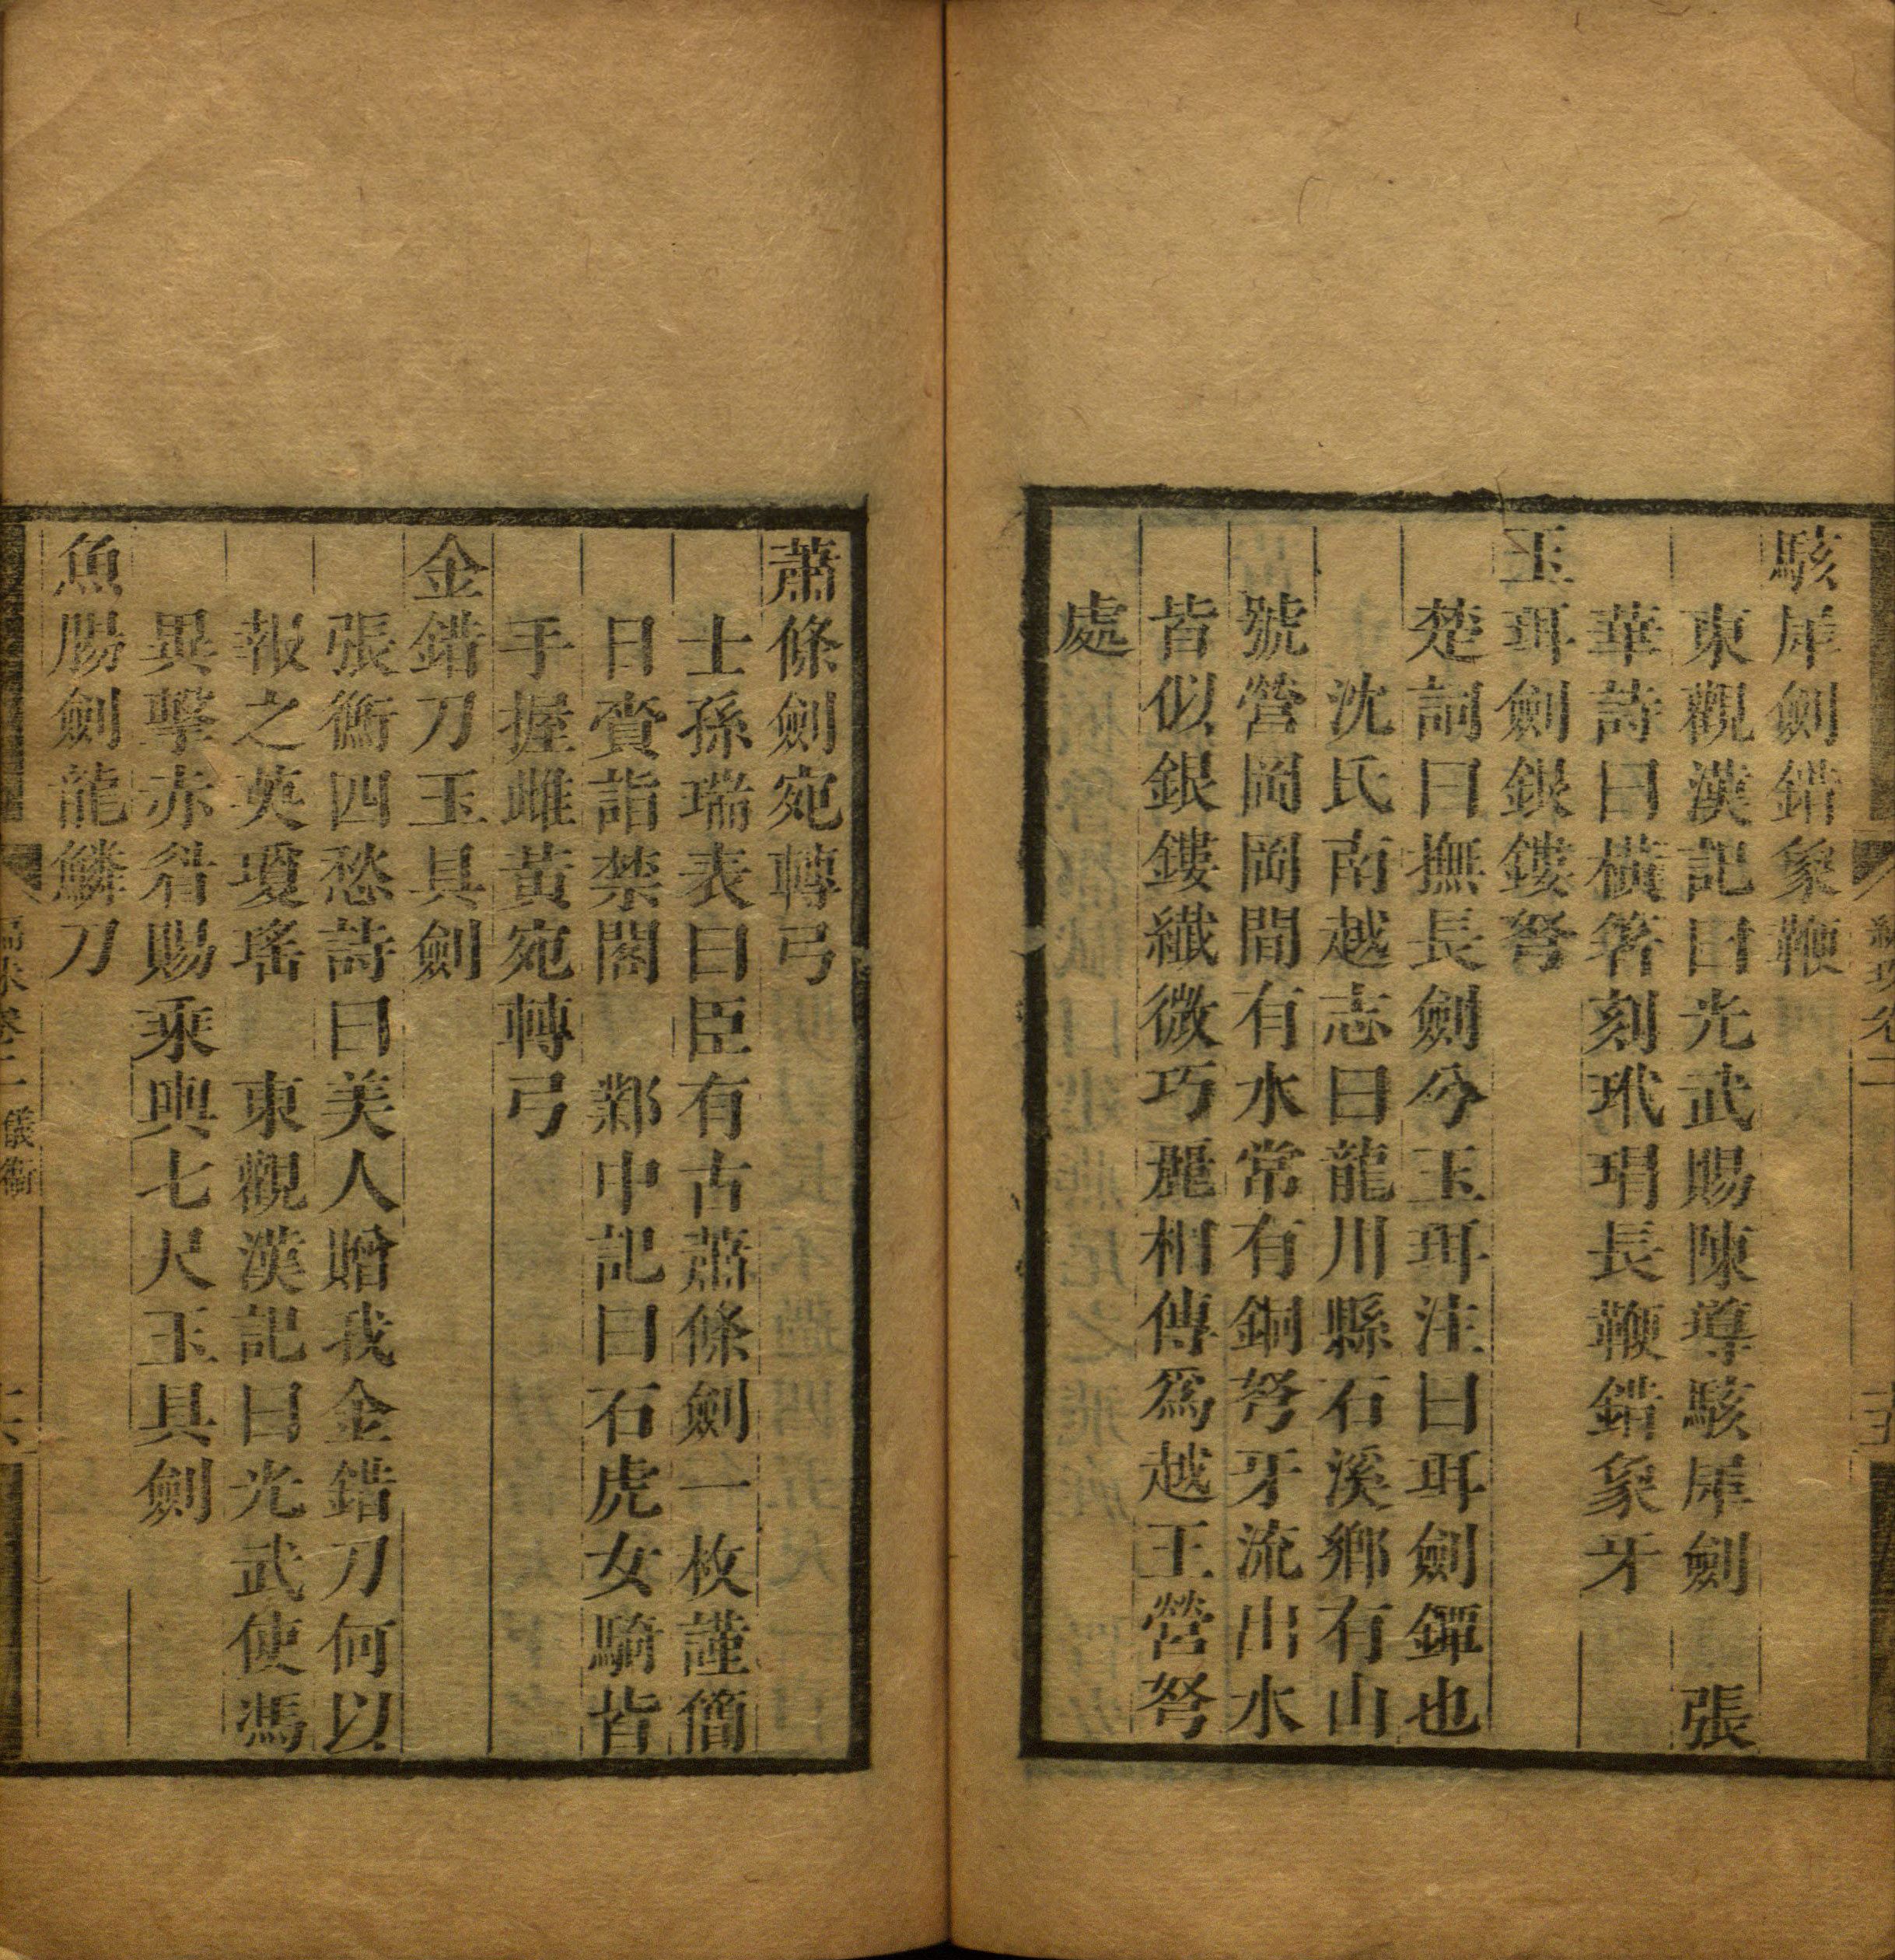 駭犀劍錯象鞭
東觀漢記曰光武賜陳導駭犀劍　張
華詩曰橫箸刻玳瑁長鞭錯象牙
玉珥劍銀鏤弩
楚詞曰撫長劍兮玉珥注曰珥劍鐔也
沈氏南越志曰龍川縣石溪鄉有山
號營岡岡間有水常有銅弩牙流出水
皆似銀鏤纎微巧麗相傳爲越王營弩
處
蕭條劍宛轉弓
士孫瑞表曰臣有古蕭條劍一枚謹僃
日賫詣禁閤　鄴中記曰石虎女騎皆
手握雌黃宛轉弓
金錯刀玉具劍
張衡四愁詩曰美人贈我金錯刀何以
報之英瓊瑤　東觀漢記曰光武使馮
異擊赤眉賜乘輿七尺玉具劍
魚腸劍龍鱗刀
儀衞